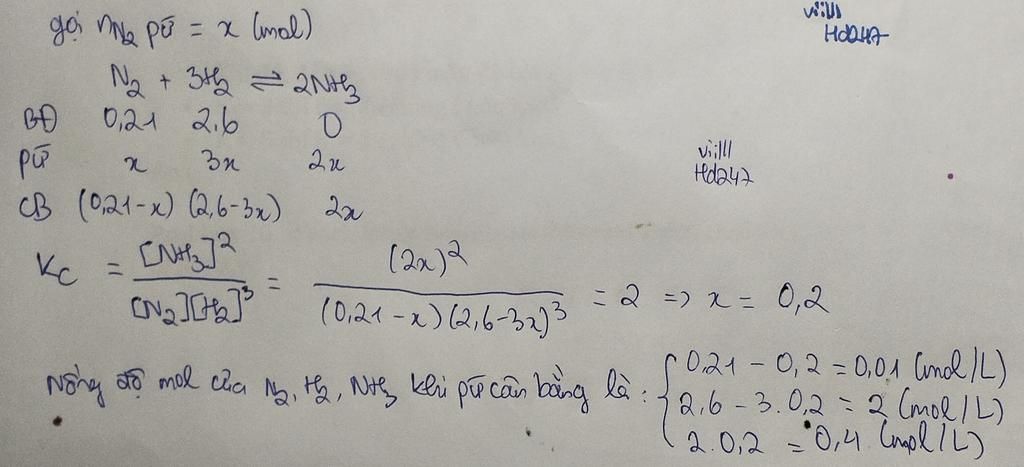 gọi nN₂ pứ = x (mol)
viill
Hd247
N₂ + 3H₂ ⇌ 2NH₃
BĐ 0,21 2,6 0
pứ x 3x 2x
viill
Hd247
CB (0,21-x) (2,6-3x) 2x
Kc = [NH₃]² / [N₂][H₂]³ = (2x)² / (0,21-x)(2,6-3x)³ = 2 => x = 0,2
Nồng độ mol của N₂, H₂, NH₃ khi pứ cân bằng là: { 0,21 - 0,2 = 0,01 (mol/L)
2,6 - 3.0,2 = 2 (mol/L)
2.0,2 = 0,4 (mol/L)